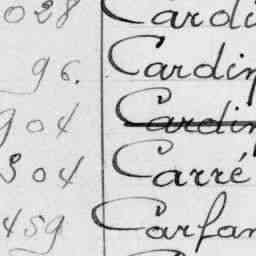 028 Cardi
96. Cardin
904 Cardin
304 Carré
459 Carfan